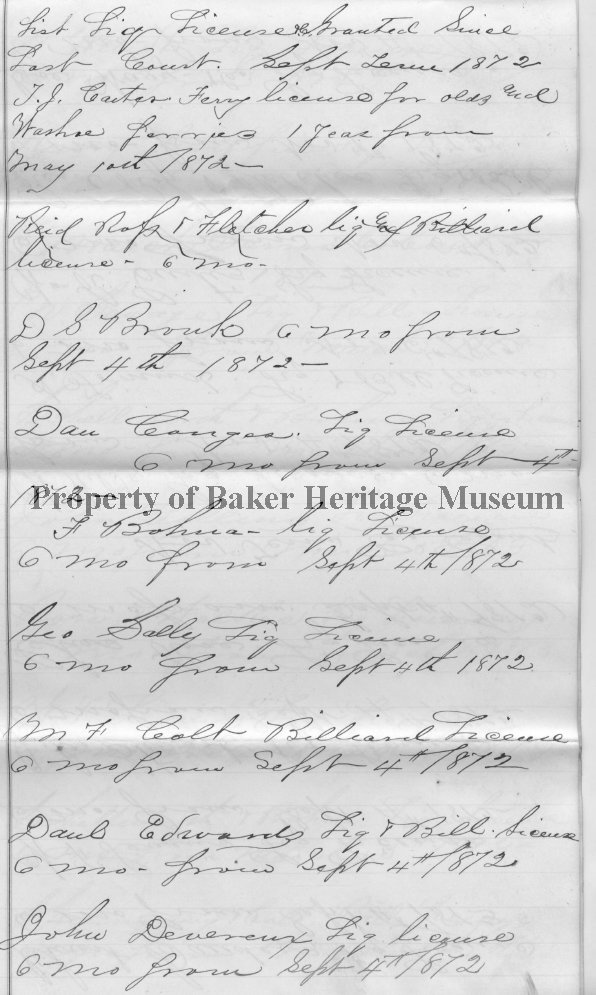 List Liqr License &c Granted Since
Last Court. Sept Term 1872
T. J. Carter Ferry license for olds and
Washoe ferries 1 year from
May 10th /1872 –
Reid Ross & Fletcher liq and Billiard
license - 6 mo -
D S Bronk 6 mo from
Sept 4th 1872 –
Dan Liq License
6 mo from Sept 4th
1872 –
Property of Baker Heritage Museum
F Bohna - liq License
6 mo from Sept 4th /1872
Geo Liq License
6 mo from Sept 4th 1872
M F Colt Billiard License
6 mo from Sept 4th /1872
Danl Edwards Liq & Bill. License
6 mo - from Sept 4th /1872
John Devereux Liq license
6 mo from Sept 4th /1872